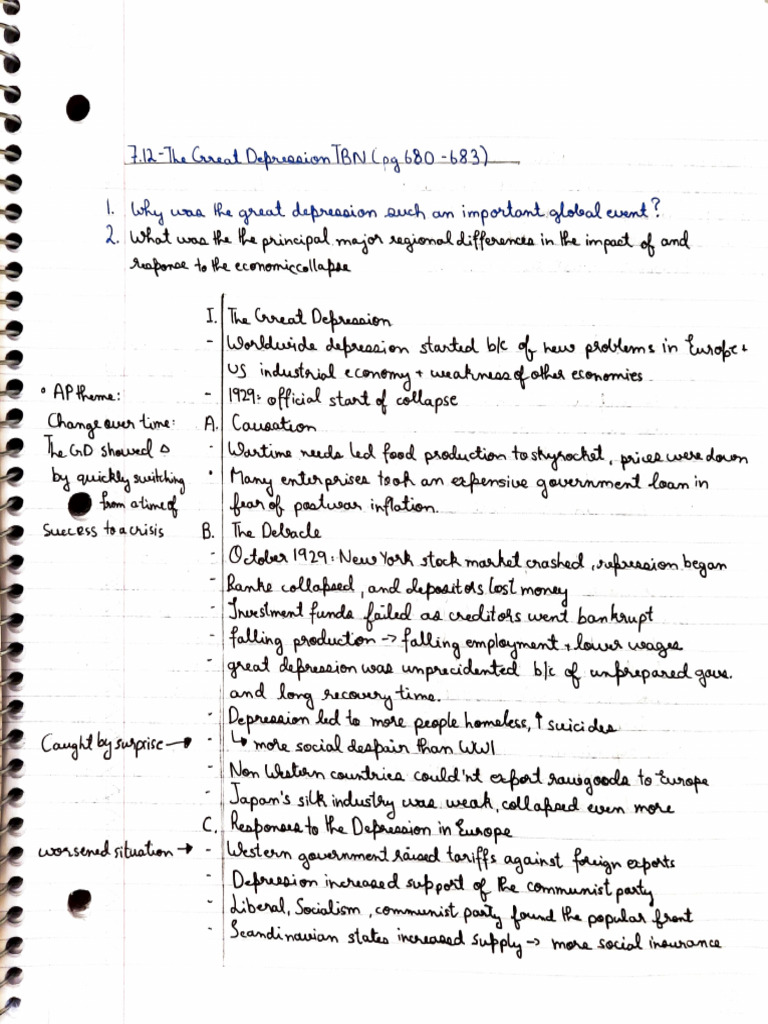 7.12-The Great Depression TBN (pg 680-683)
1. Why was the great depression such an important global event?
2. What was the the principal major regional differences in the impact of and
response to the economic collapse
I. The Great Depression
- Worldwide depression started b/c of new problems in Europe +
US industrial economy + weakness of other economies
• AP theme:
- 1929: official start of collapse
Change over time:
A. Causation
The GD showed
- Wartime needs led food production to skyrocket, prices were down
by quickly switching
• Many enterprises took an expensive government loan in
from a time of
fear of postwar inflation.
success to a crisis
B. The Debacle
- October 1929: New York stock market crashed, repression began
- Banks collapsed, and depositors lost money
- Investment funds failed as creditors went bankrupt
- falling production → falling employment + lower wages
- great depression was unprecidented b/c of unprepared govs.
and long recovery time.
- Depression led to more people homeless, ↑ suicides
Caught by surprise →
- ↳ more social despair than WWI
- Non Western countries could'nt export raw goods to Europe
- Japan's silk industry was weak, collapsed even more
C. Responses to the Depression in Europe
worsened situation →
- Western government raised tariffs against foreign exports
- Depression increased support of the communist party
- Liberal, Socialism, communist party found the popular front
- Scandinavian states increased supply → more social insurance